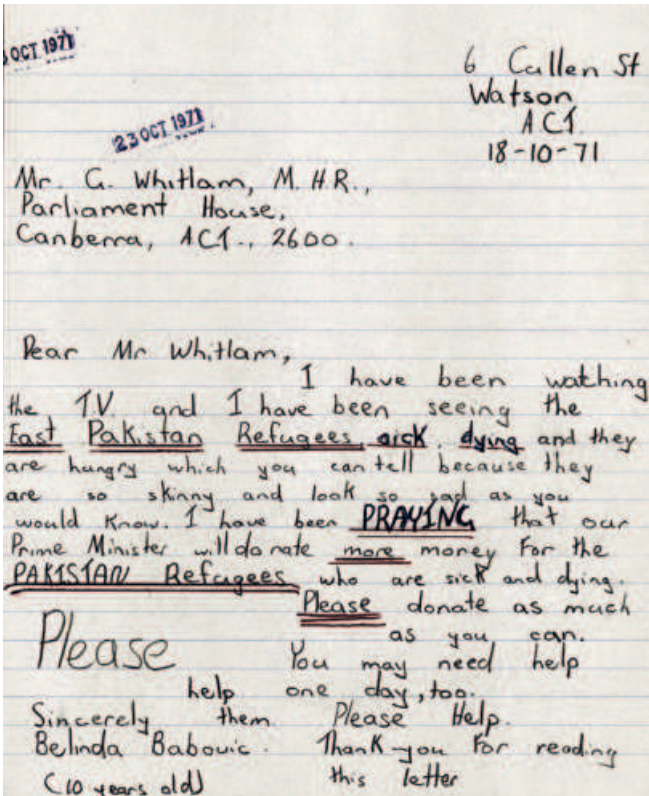 OCT 1971
23 OCT 1971
6 Cullen St
Watson
ACT.
18-10-71
Mr. G. Whitlam, M.H.R.,
Parliament House,
Canberra, ACT., 2600.
Dear Mr Whitlam,
I have been watching
the T.V. and I have been seeing the
East Pakistan Refugees, sick, dying and they
are hungry which you can tell because they
are so skinny and look so sad as you
would know. I have been PRAYING that our
Prime Minister will donate more money for the
PAKISTAN Refugees who are sick and dying.
Please donate as much
as you can.
Please You may need help
help one day, too.
Sincerely them. Please Help.
Belinda Babovic. Thank-you for reading
(10 years old) this letter